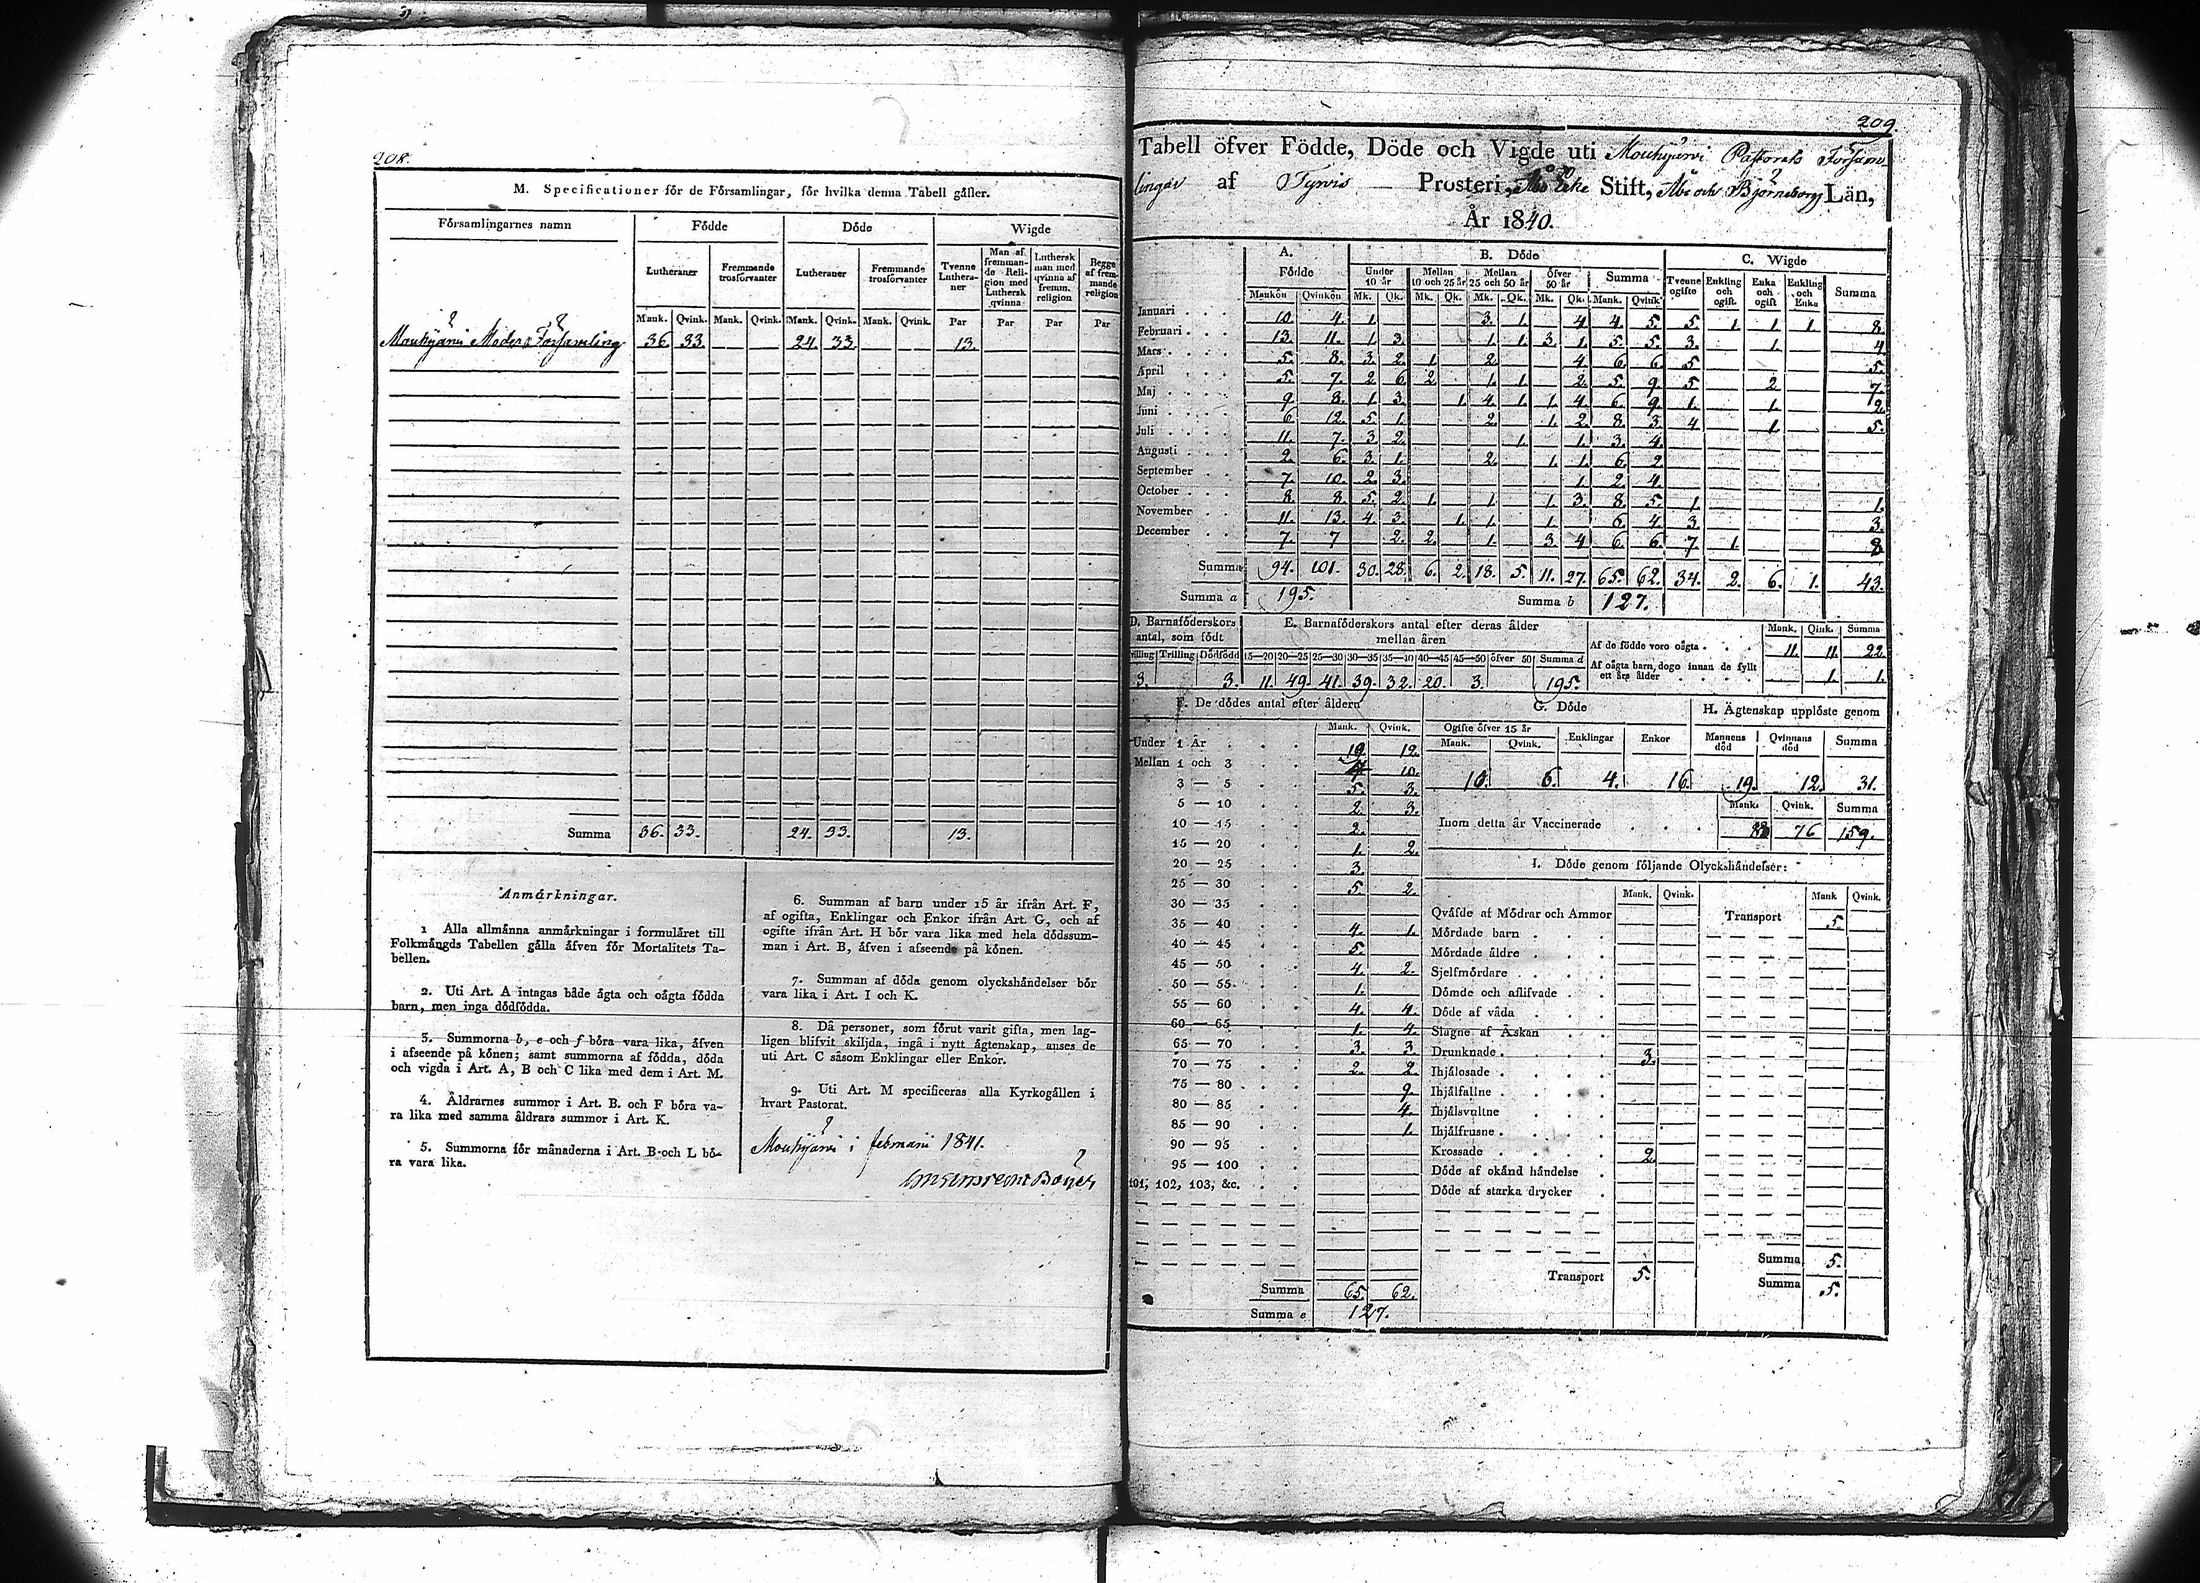 208.
M. Specificationer för de Församlingar, för hvilka denna Tabell gäller.
Församlingarnes namn | Födde | Döde | Wigde
Lutheraner | Fremmande trosförvanter | Lutheraner | Fremmande trosförvanter | Tvenne Lutheraner | Man af fremmande Religion med Luthersk qvinna | Luthersk man med qvinna af fremm. religion | Begge af fremmande religion
Mank. | Qvink. | Mank. | Qvink. | Mank. | Qvink. | Mank. | Qvink. | Par | Par | Par | Par
Mouhijärvi Moder Församling 36 33. 24. 33 13.
Summa 36. 33. 24. 33. 13.
Anmärkningar.
1 Alla allmänna anmärkningar i formuläret till
Folkmängds Tabellen gälla äfven för Mortalitets Ta-
bellen.
2. Uti Art. A intagas både ägta och oägta födda
barn, men inga dödfödda.
3. Summorna b, e och f böra vara lika, äfven
i afseende på könen; samt summorna af födda, döda
och vigda i Art. A, B och C lika med dem i Art. M.
4. Åldrarnes summor i Art. B. och F böra va-
ra lika med samma åldrars summor i Art. K.
5. Summorna för månaderna i Art. B och L bö-
ra vara lika.
6. Summan af barn under 15 år ifrån Art. F,
af ogifta, Enklingar och Enkor ifrån Art. G, och af
ogifte ifrån Art. H bör vara lika med hela dödssum-
man i Art. B, äfven i afseende på könen.
7. Summan af döda genom olyckshändelser bör
vara lika i Art. I och K.
8. Då personer, som förut varit gifta, men lag-
ligen blifvit skiljda, ingå i nytt ägtenskap, anses de
uti Art. C såsom Enklingar eller Enkor.
9. Uti Art. M specificeras alla Kyrkogällen i
hvart Pastorat.
Mouhijärvi i februarii 1841.
209.
Tabell öfver Födde, Döde och Vigde uti Mouhijärvi Pastorats Försam-
lingar af Tyrvis Prosteri, Åbo Erke Stift, Åbo och Björneborg Län,
År 1840.
A. Födde | B. Döde | C. Wigde
Under 10 år | Mellan 10 och 25 år | Mellan 25 och 50 år | öfver 50 år | Summa | Tvenne ogifte | Enkling och ogift | Enka och ogift | Enkling och Enka | Summa
Mankön | Qvinkön | Mk. | Qk. | Mk. | Qk. | Mk. | Qk. | Mk. | Qk. | Mank. | Qvink.
Januari 10 4. 1. 3. 1. 4 4. 5. 5. 1. 1. 1 8.
Februari 13 11. 1. 3. 1. 1. 3. 1. 5. 5. 3. 1. 4
Mars 5. 8. 3. 2. 1. 2. 4. 6 6. 5 5.
April 5. 7. 2 6 2 1. 1. 2. 5. 9. 5. 2 7.
Maj 9 8. 1. 3. 1. 4. 1. 1. 4 6 9. 1. 1. 2.
Juni 6 12. 5. 1. 2. 1. 2 8 3. 4 1. 5.
Juli 11. 7. 3. 2. 1. 1. 3. 4.
Augusti 2. 6. 3. 1. 2. 1. 1. 6 2.
September 7. 10. 2. 3. 1. 2. 4.
October 8. 8. 5. 2. 1. 1. 1. 3. 8. 5. 1. 1.
November 11. 13. 4. 3. 1. 1. 1. 6. 4. 3. 3.
December 7. 7 2. 2. 1. 3. 4 6. 6. 7. 1. 8
Summa 94. 101. 30. 28. 6. 2. 18. 5. 11. 27. 65. 62. 34. 2. 6. 1. 43.
Summa a 195. Summa b 127.
D. Barnaföderskors antal, som födt
Trilling | Dödfödd
3. 3.
E. Barnaföderskors antal efter deras ålder mellan åren
15—20 | 20—25 | 25—30 | 30—35 | 35—40 | 40—45 | 45—50 | öfver 50 | Summa d
11. 49. 41. 39. 32. 20. 3. 195.
Mank. | Qink. | Summa
Af de födde voro oägta 11. 11. 22
Af oägta barn, dogo innan de fyllt
ett års ålder 1. 1.
F. De dödes antal efter åldern
Mank. | Qvink.
Under 1 År 19 12.
Mellan 1 och 3 10.
3 — 5 5. 3.
5 — 10 2. 3.
10 — 15 2.
15 — 20 1. 2.
20 — 25 3.
25 — 30 5. 2.
30 — 35
35 — 40 4. 1.
40 — 45 5.
45 — 50 4. 2.
50 — 55 1.
55 — 60 4. 4.
60 — 65 1. 4.
65 — 70 3. 3.
70 — 75 2. 2.
75 — 80 9.
80 — 85 4.
85 — 90 1.
90 — 95
95 — 100
101, 102, 103, &c.
Summa 65. 62.
Summa e 127.
G. Döde
Ogifte öfver 15 år | Enklingar | Enkor
Mank. | Qvink.
10. 6. 4. 16.
H. Ägtenskap upplöste genom
Mannens död | Qvinnans död | Summa
19. 12. 31.
Mank. | Qvink. | Summa
Inom detta år Vaccinerade 76 159.
I. Döde genom följande Olyckshändelser:
Mank. | Qvink. | Transport | Mank | Qvink.
5.
Qväfde af Mödrar och Ammor
Mördade barn
Mördade äldre
Sjelfmördare
Dömde och aflifvade
Döde af våda
Slagne af Åskan
Drunknade 3.
Ihjälosade
Ihjälfallne
Ihjälsvultne
Ihjälfrusne
Krossade 2
Döde af okänd händelse
Döde af starka drycker
Transport 5.
Summa 5.
Summa 5.